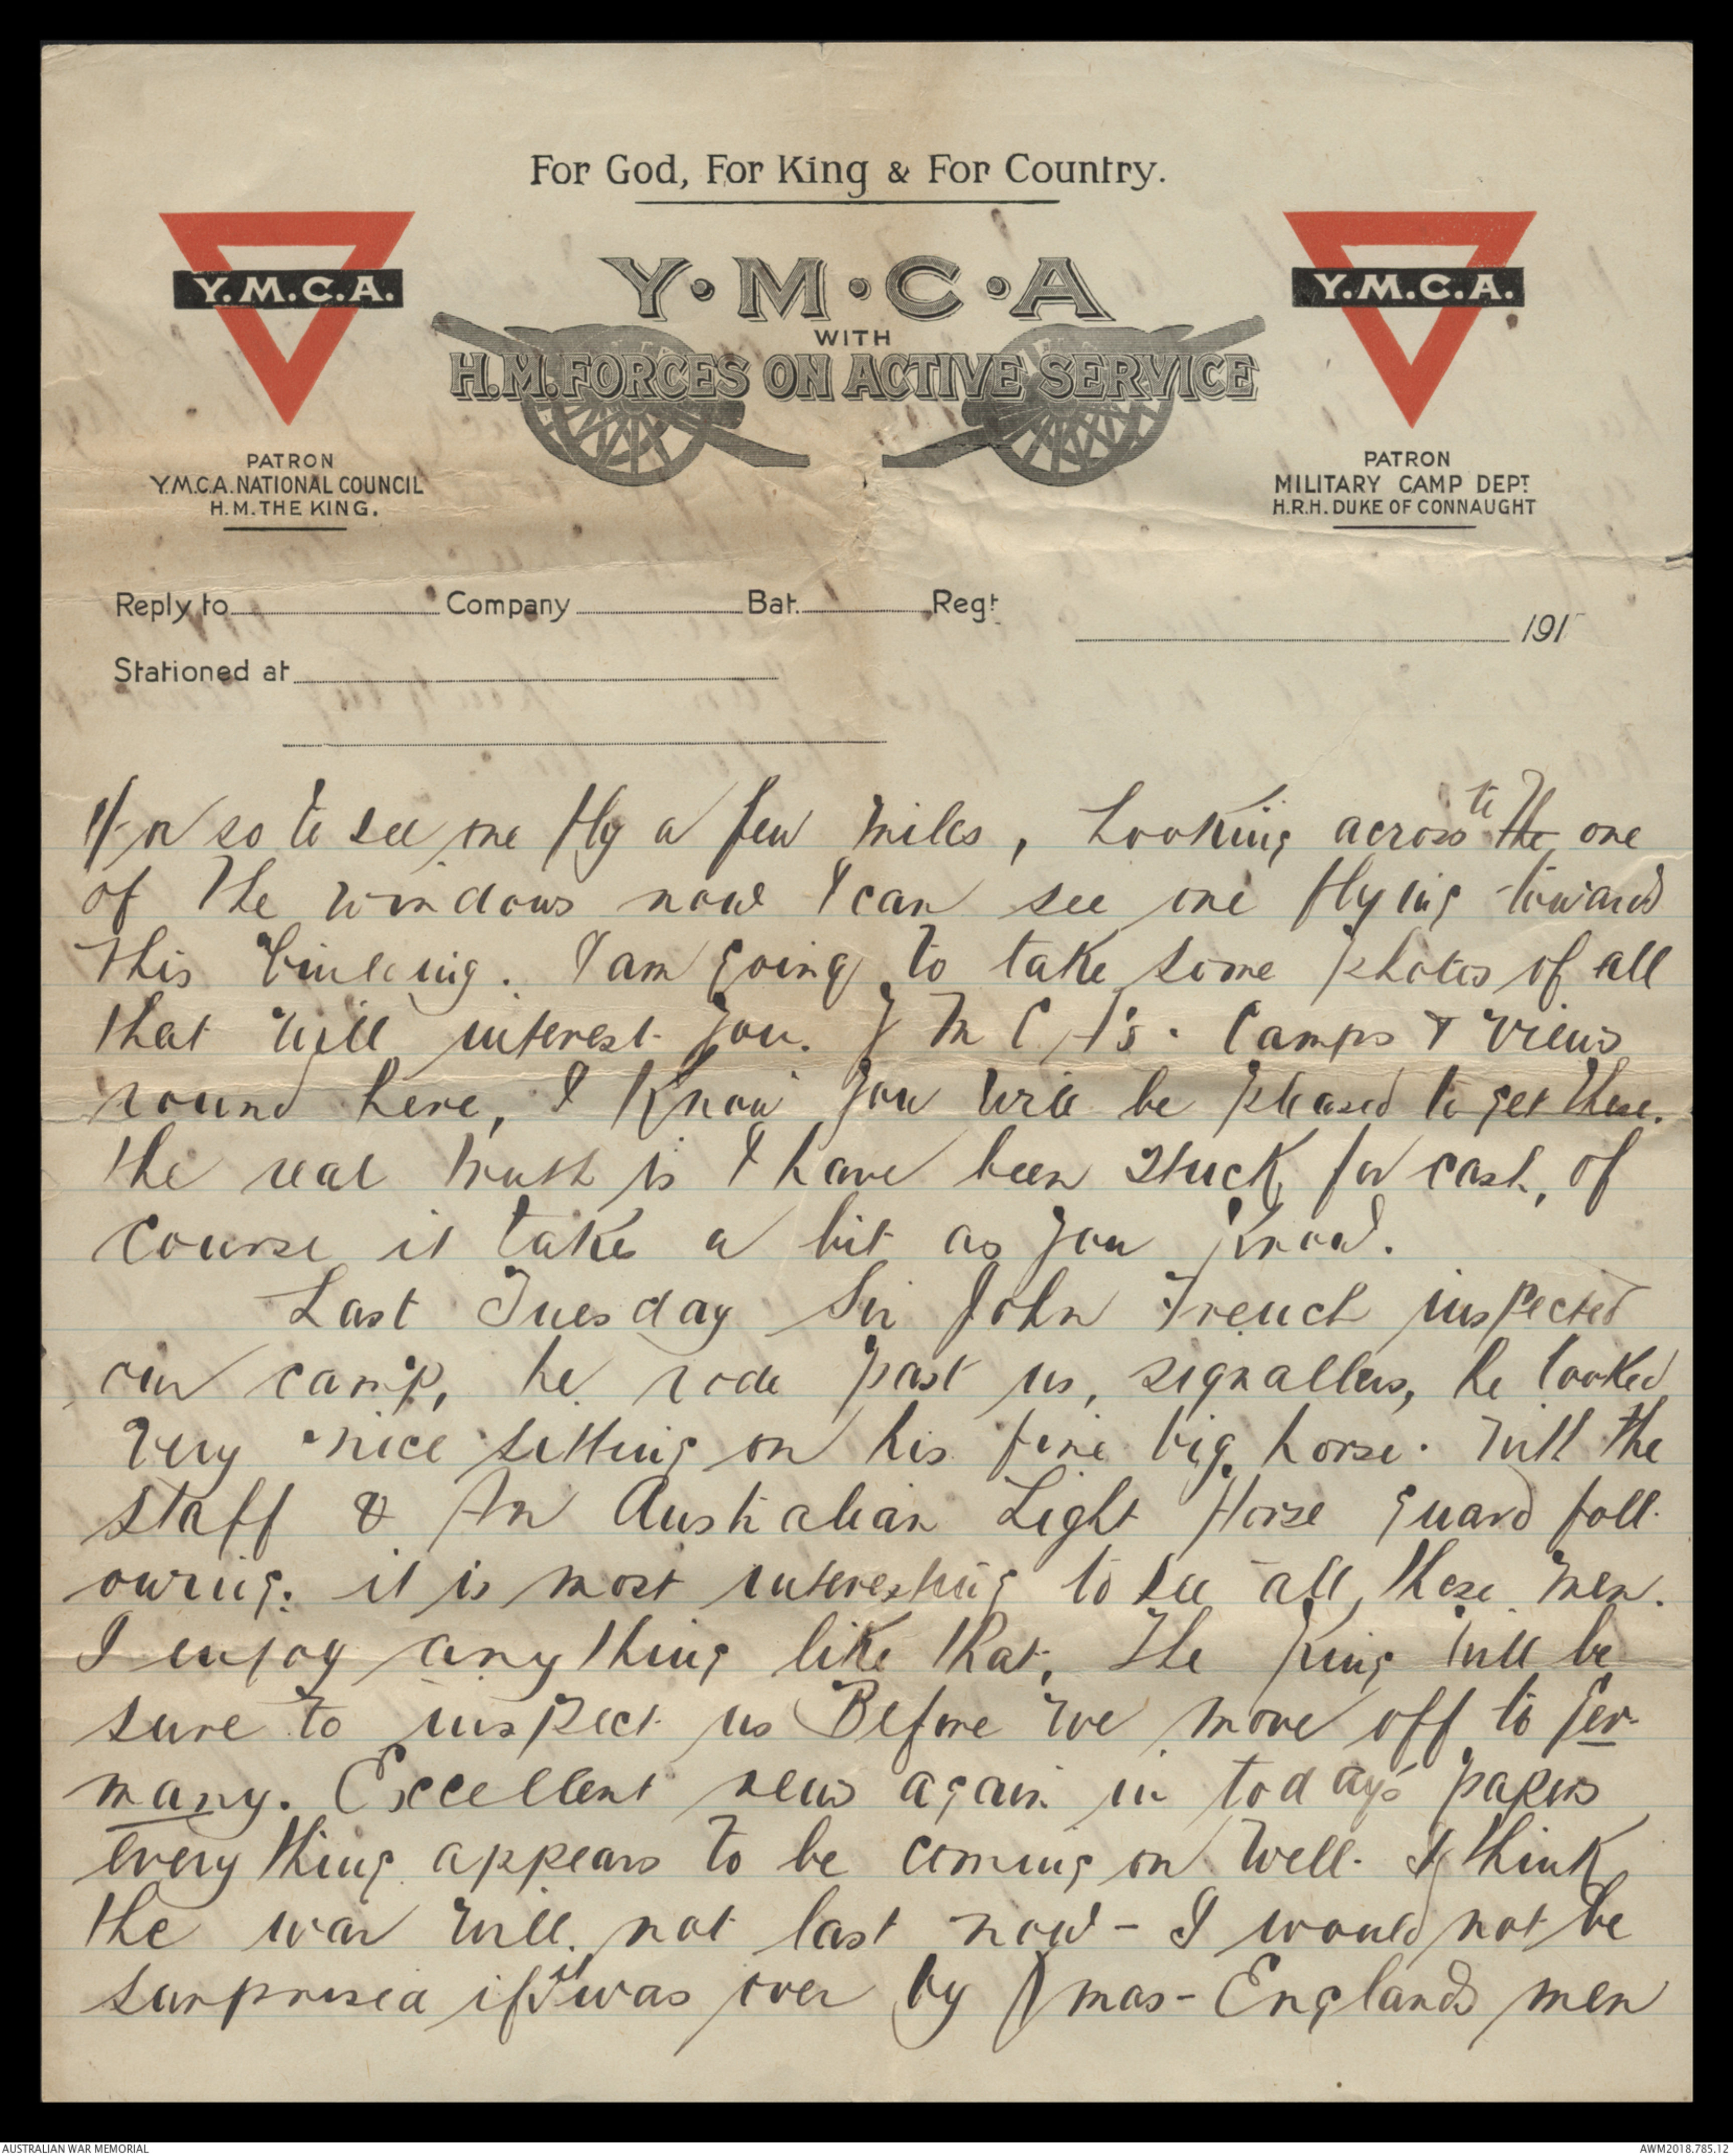 For God, For King & For Country.
Y.M.C.A.
Y.M.C.A
WITH
H.M. FORCES ON ACTIVE SERVICE
Y.M.C.A.
PATRON
Y.M.C.A. NATIONAL COUNCIL
H.M. THE KING.
PATRON
MILITARY CAMP DEPT
H.R.H. DUKE OF CONNAUGHT
Reply to Company Bat. Regt
191
Stationed at
or so to see one fly a few miles, Looking across to the one
of the windows now I can see one flying towards
this building. I am going to take some photos of all
that will interest you. Y M C A's. Camps & views
round here, I know you will be pleased to get these.
the real truth is I have been stuck for cash, of
course it takes a bit as you know.
Last Tuesday Sir John French inspected
our camp, he rode past us, signallers, he looked
very nice sitting on his fine big horse. With the
staff & An Australian Light Horse guard foll-
owing. it is most interesting to see all these men.
I enjoy anything like that. The King will be
sure to inspect us Before we move off to Ger-
many. Excellent news again in today's papers
everything appears to be coming on well. I think
the war will not last now - I would not be
surprised if it was over by Xmas - Englands men
AUSTRALIAN WAR MEMORIAL
AWM2018.785.12